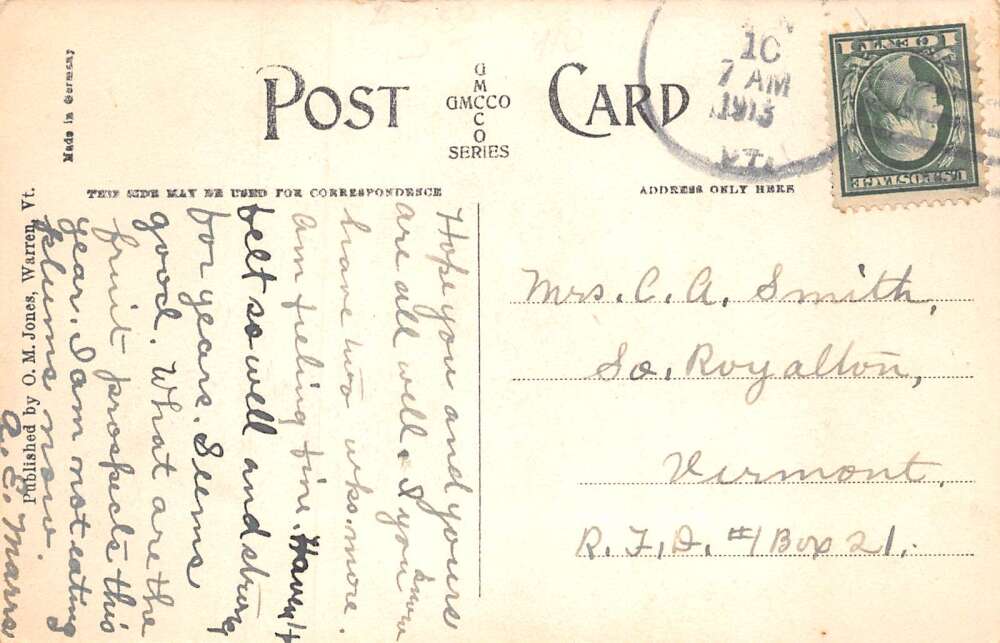 Made in Germany
POST CARD
GMCCO
GMCCO
SERIES
THIS SIDE MAY BE USED FOR CORRESPONDENCE
ADDRESS ONLY HERE
Published by O. M. Jones, Warren, Vt.
10
7 AM
1913
VT.
U.S. POSTAGE
1 CENT 1
Hope you and yours
are all well. I you know
have two wks. more.
am feeling fine. Haven't
felt so well and strong
for years. Seems
good. What are the
fruit prospects this
year. I am not eating
plums now.
Mrs. C. A. Smith,
So. Royalton,
Vermont,
R.F.D. #1 Box 21.